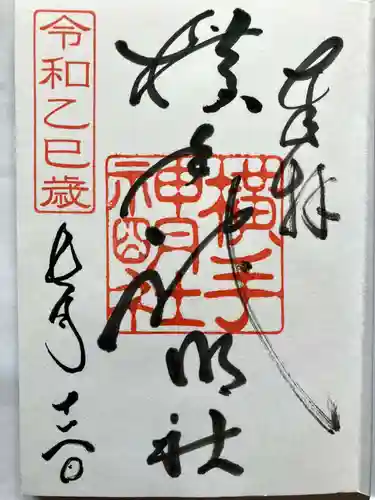 奉拝
横手神明社
横手
神明社
令和乙巳歳
七月十六日